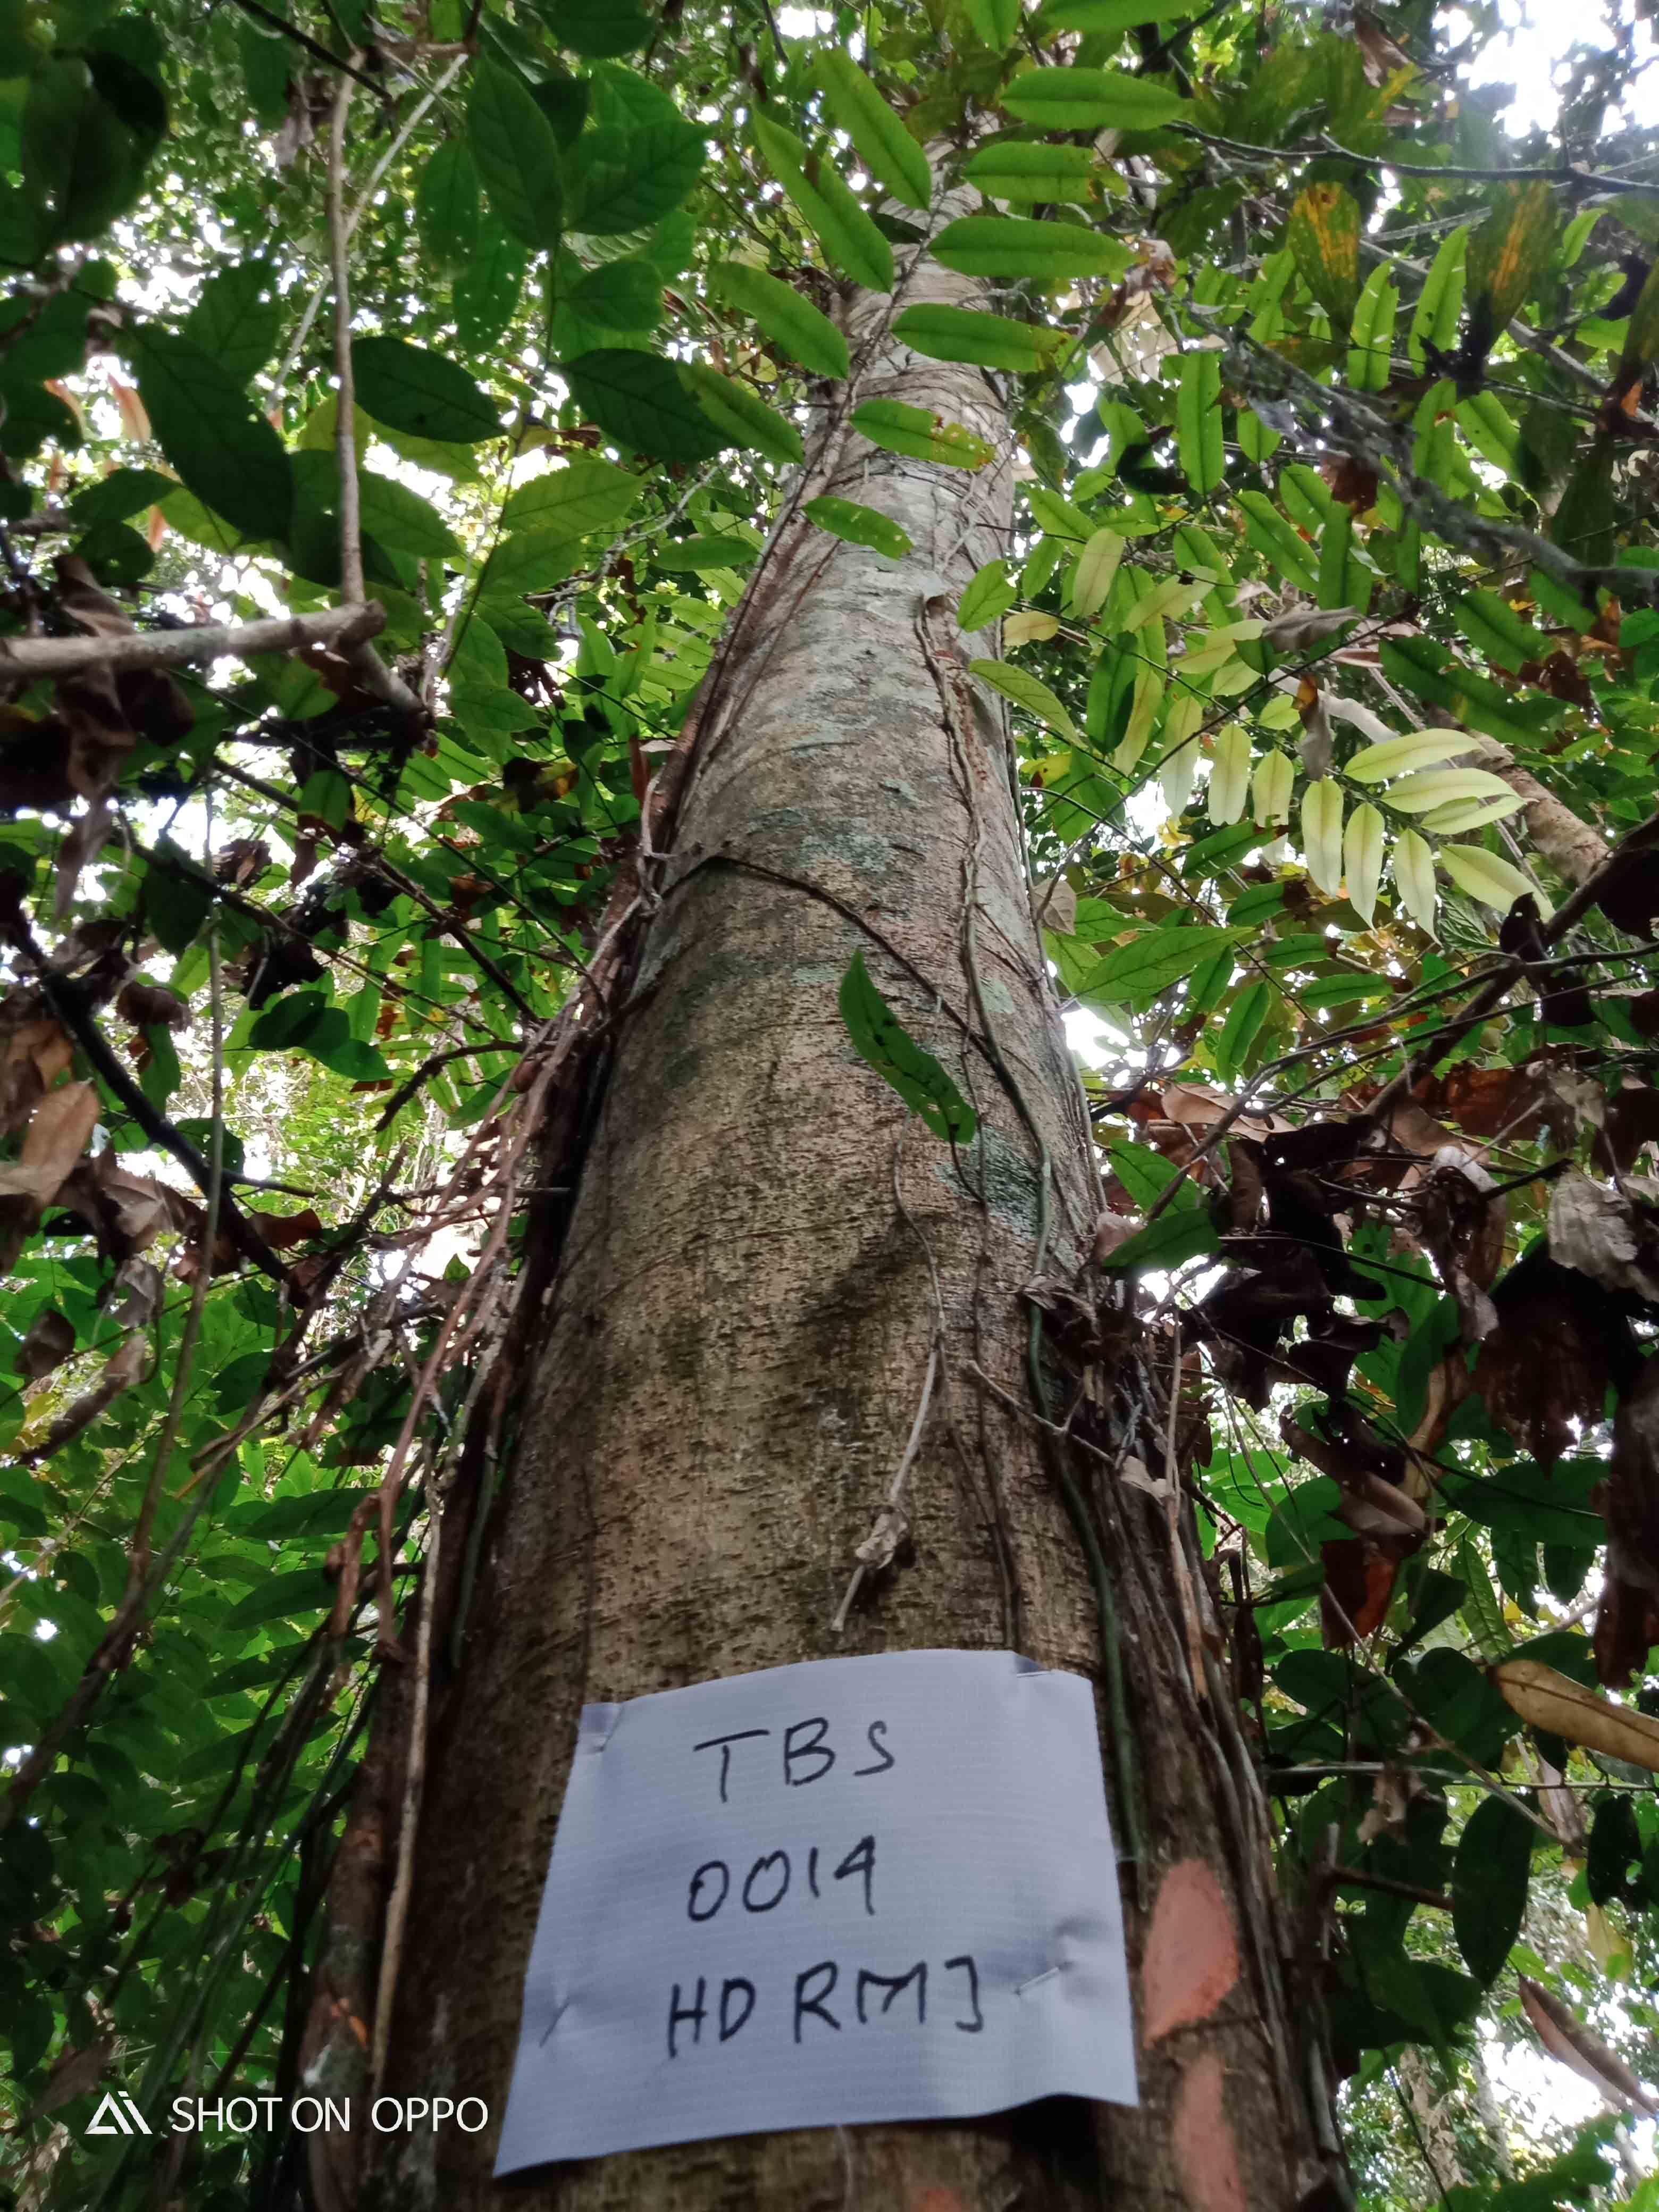 TBS
0014
HD RMJ
SHOT ON OPPO